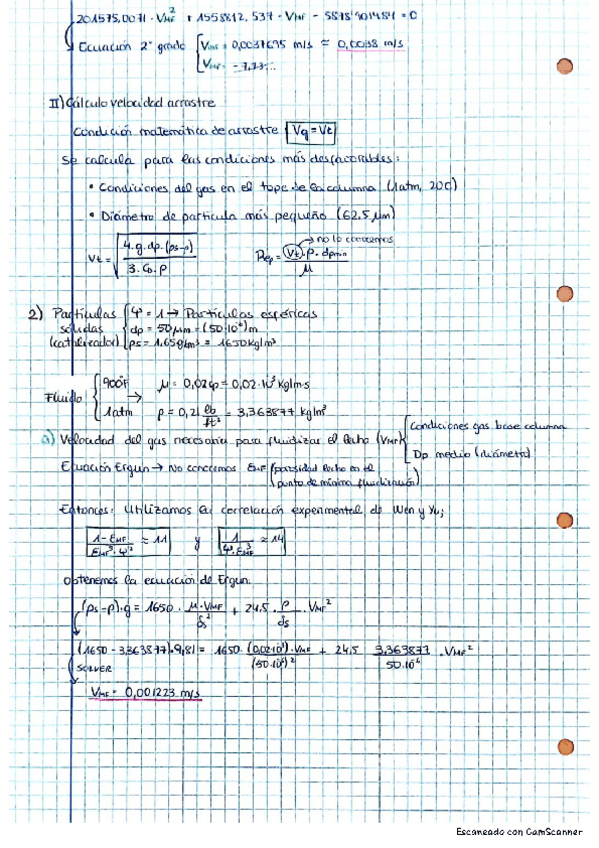 201575,0071 · VMF² + 1558812,537 · VMF - 5878'901484 = 0
Ecuación 2º grado VMF = 0,0037695 m/s ≈ 0,0038 m/s
VMF = - 7,73...
II) Cálculo velocidad arrastre
Condición matemática de arrastre Vg = Vt
Se calcula para las condiciones más desfavorables:
• Condiciones del gas en el tope de la columna (1atm, 20C)
• Diámetro de partícula más pequeño (62,5 μm)
→ no lo conocemos
Vt = √ 4·g·dp·(ρs-ρ) / 3·CD·ρ Rep = Vt·ρ·dpmin / μ
2) Partículas sólidas (catalizador) Ψ = 1 → Partículas esféricas
dp = 50 μm = (50·10⁻⁶) m
ρs = 1,65 g/cm³ = 1650 kg/m³
Fluido 900ºF → μ = 0,02 cp = 0,02·10⁻³ kg/m·s
1atm ρ = 0,21 lb/ft³ = 3,363877 kg/m³
a) Velocidad del gas necesaria para fluidizar el lecho (VMF) Condiciones gas base columna
Dp medio (diámetro)
Ecuación Ergun → No conocemos EMF (porosidad lecho en el
punto de mínima fluidización)
Entonces: Utilizamos la correlación experimental de Wen y Yu;
1-EMF / EMF³·Ψ² ≈ 11 y 1 / Ψ·EMF³ ≈ 14
obtenemos la ecuación de Ergun.
(ρs-ρ)·g = 1650 · μ·VMF / ds² + 24,5 · ρ / ds · VMF²
(1650 - 3,363877)·9,81 = 1650 · (0,02·10⁻³)·VMF / (50·10⁻⁶)² + 24,5 3,363877 / 50·10⁻⁶ · VMF²
SOLVER
VMF = 0,001223 m/s
Escaneado con CamScanner